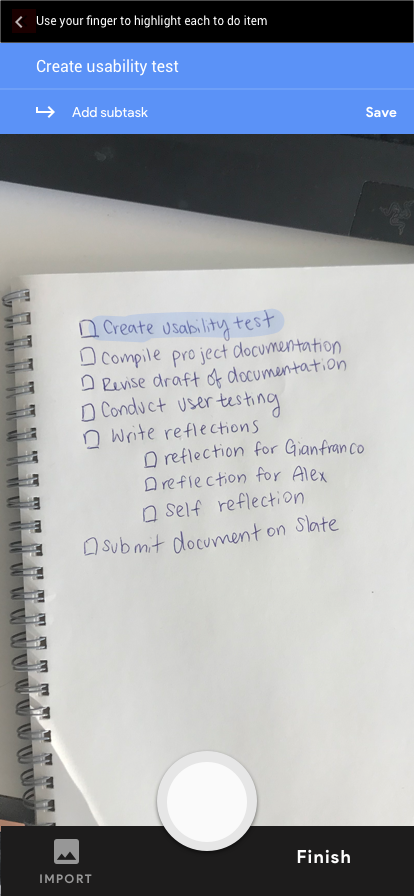 Use your finger to highlight each to do item
Create usability test
Add subtask
Save
Create usability test
Compile project documentation
Revise draft of documentation
Conduct user testing
Write reflections
reflection for Gianfranco
reflection for Alex
Self reflection
submit document on Slate
IMPORT
Finish